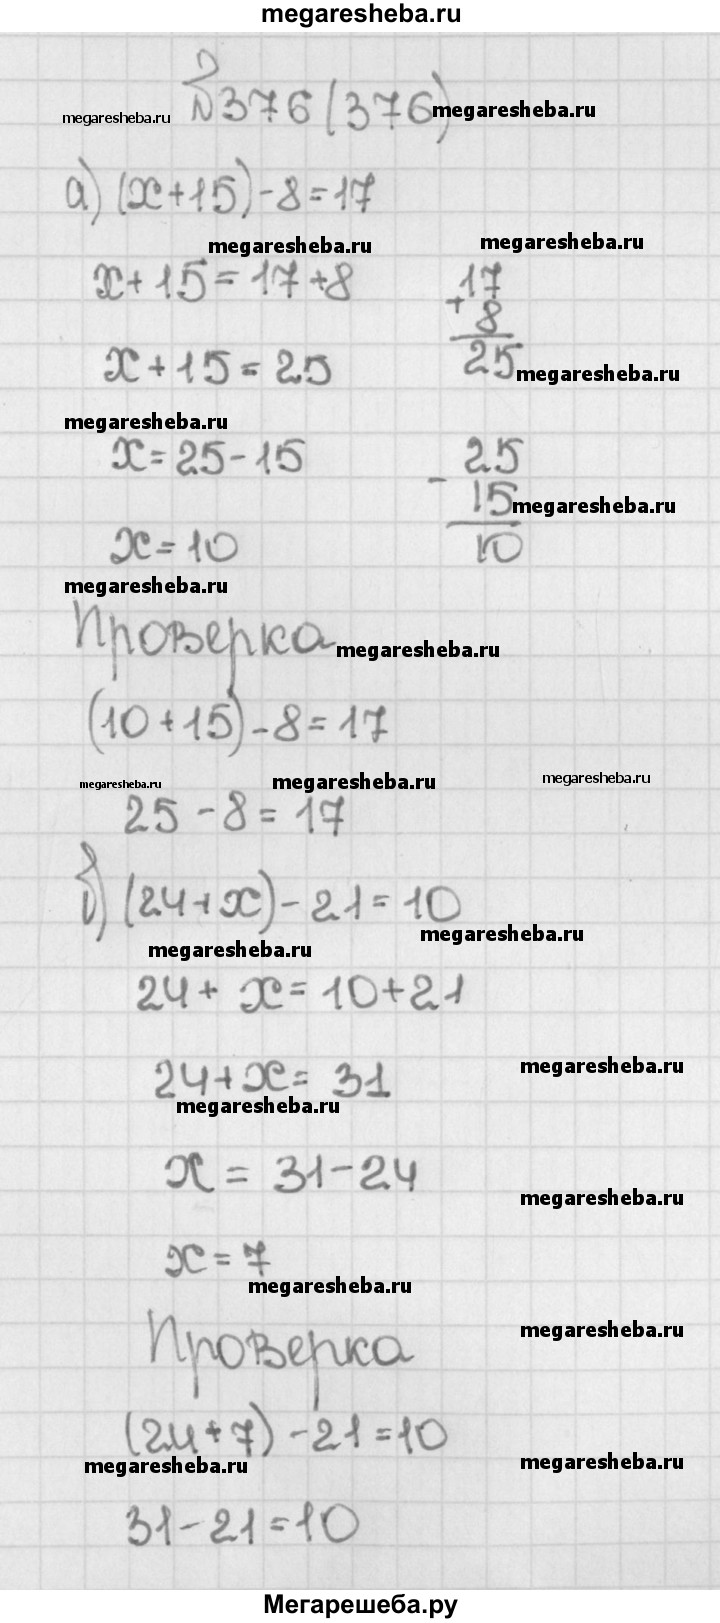 megaresheba.ru
№376(376) megaresheba.ru
megaresheba.ru
а) (x+15)-8=17
megaresheba.ru megaresheba.ru
x+15=17+8
17
+ 8
25 megaresheba.ru
x+15=25
megaresheba.ru
x=25-15
- 25
15 megaresheba.ru
10
x=10
megaresheba.ru
Проверка megaresheba.ru
(10+15)-8=17
megaresheba.ru megaresheba.ru megaresheba.ru
25-8=17
б) (24+x)-21=10
megaresheba.ru megaresheba.ru
24+x=10+21
24+x=31 megaresheba.ru
megaresheba.ru
x=31-24 megaresheba.ru
x=7
megaresheba.ru
Проверка megaresheba.ru
(24+7)-21=10
megaresheba.ru megaresheba.ru
31-21=10
Мегарешеба.ру